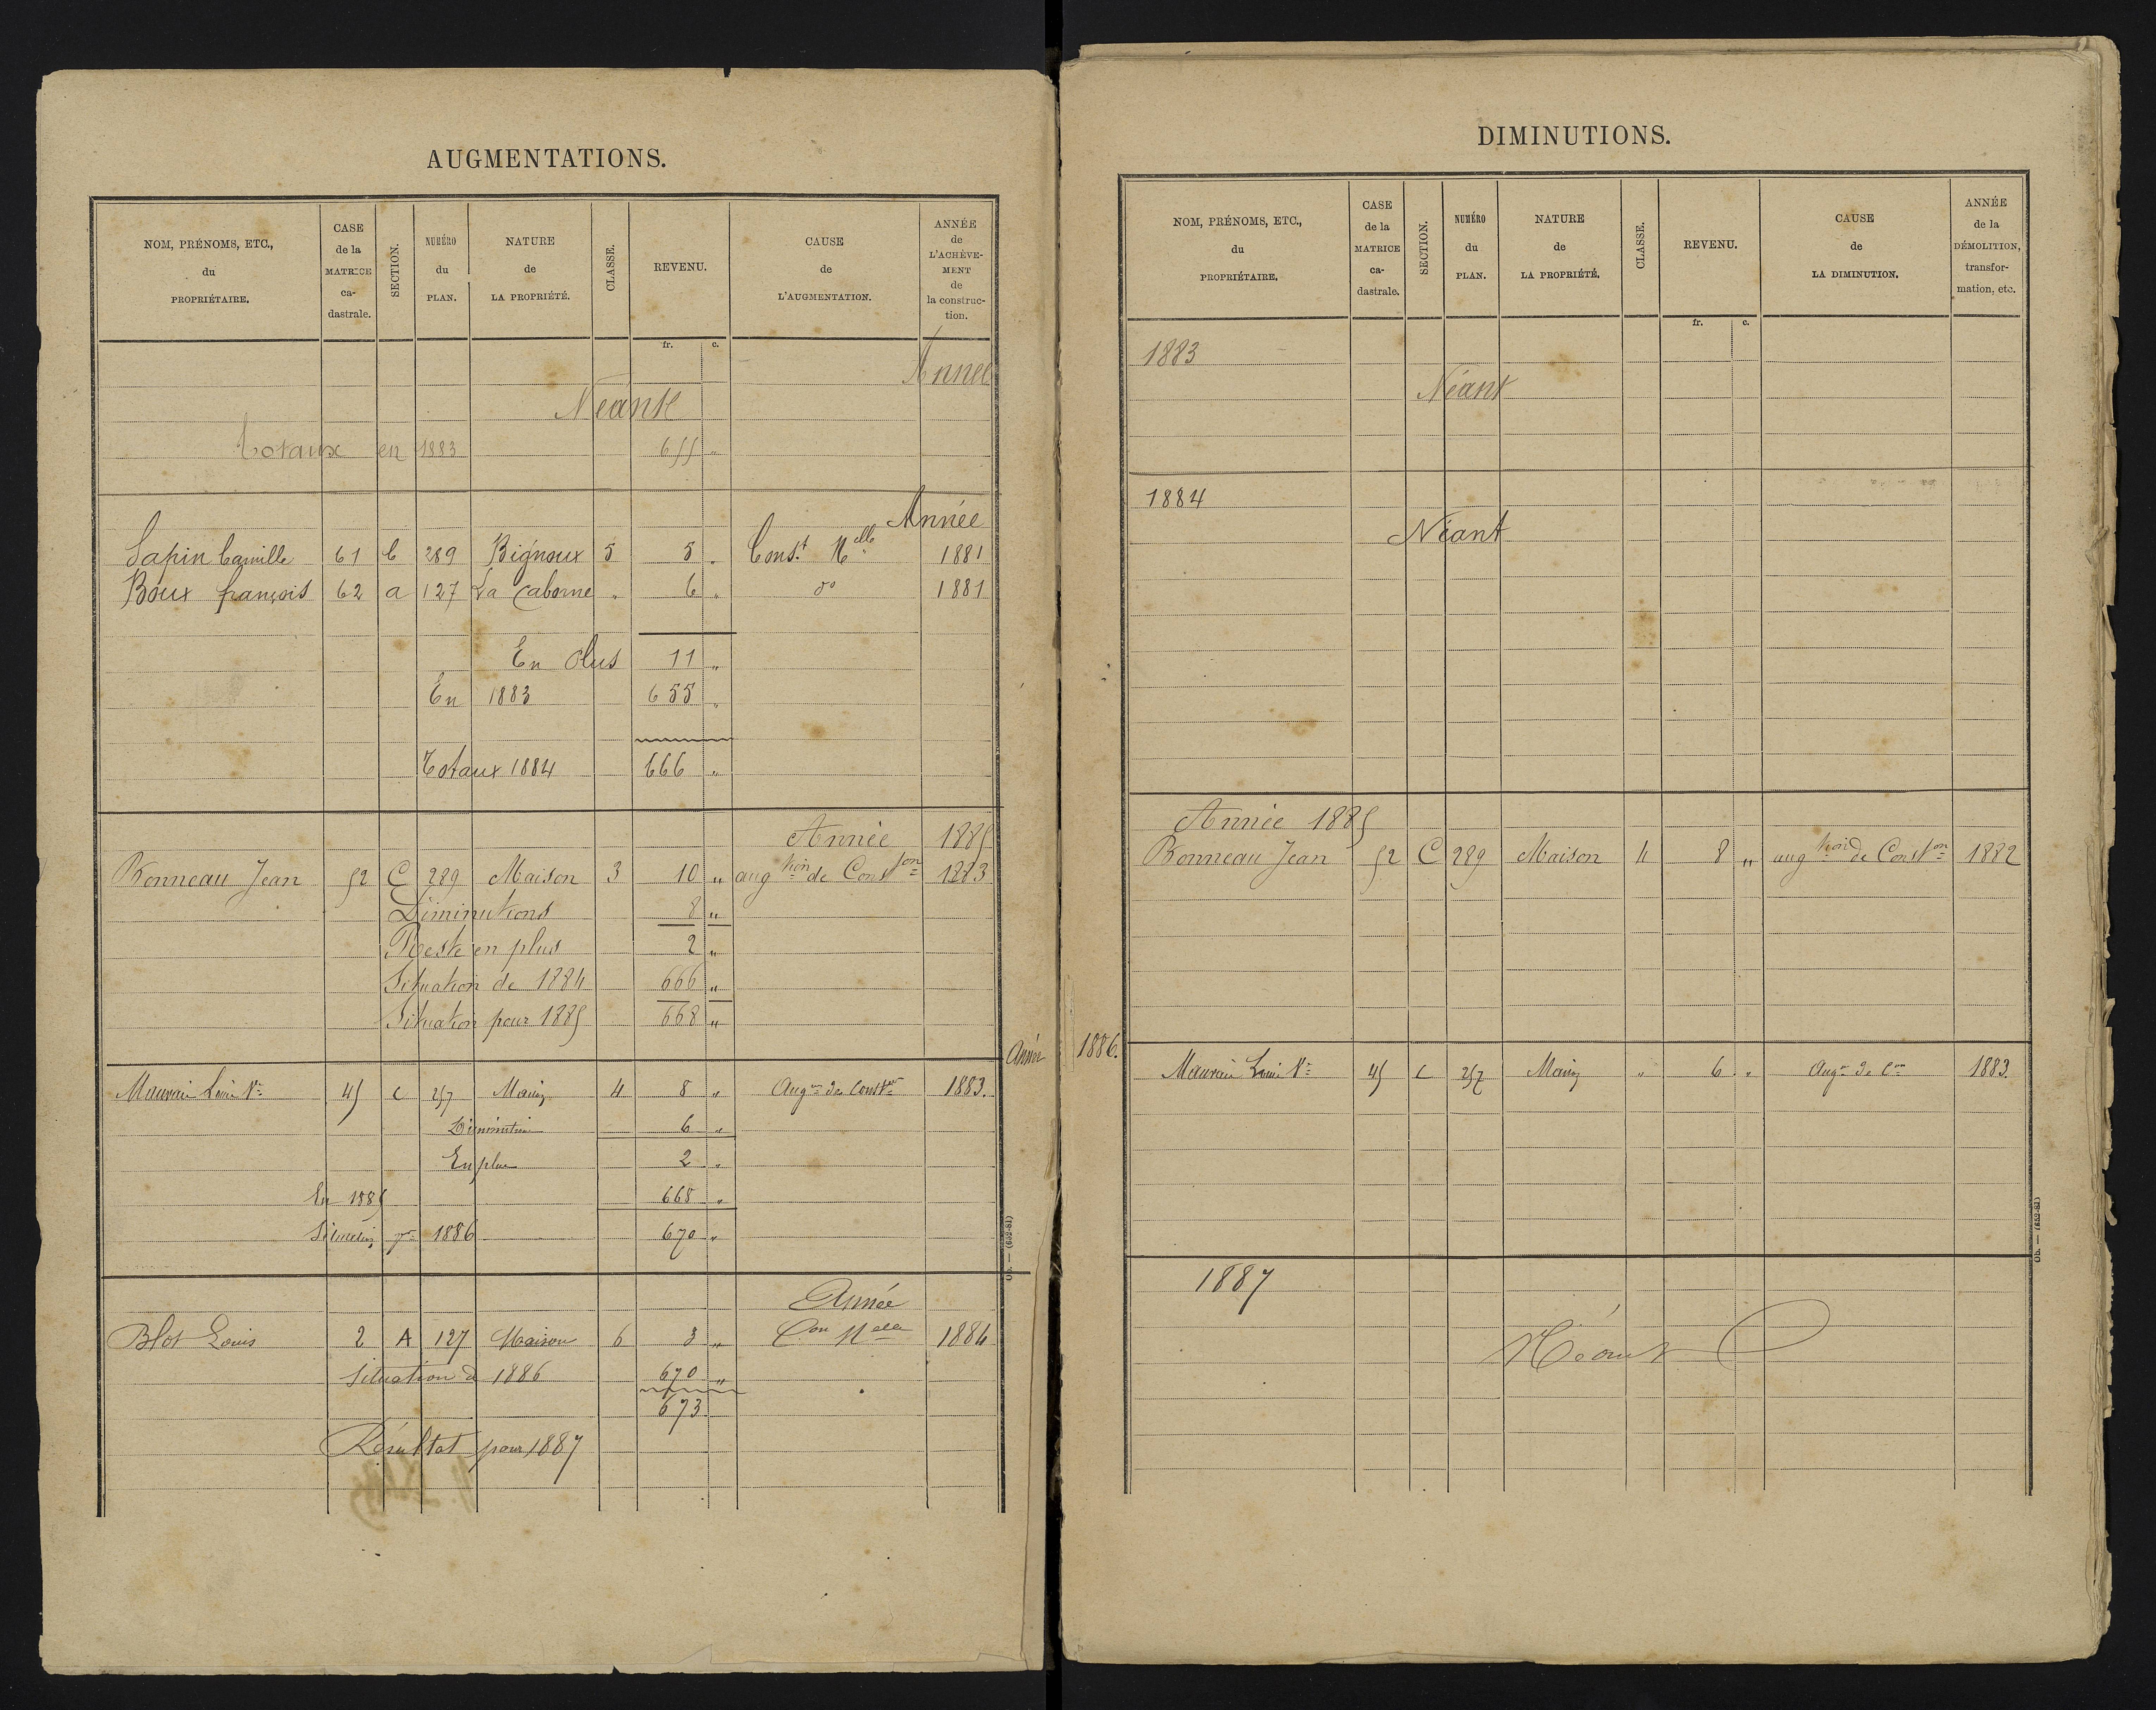 AUGMENTATIONS.
NOM, PRÉNOMS, ETC., du PROPRIÉTAIRE.
CASE de la MATRICE ca-dastrale.
SECTION.
NUMÉRO du PLAN.
NATURE de LA PROPRIÉTÉ.
CLASSE.
REVENU.
CAUSE de L'AUGMENTATION.
ANNÉE de L'ACHÈVE-MENT de la construc-tion.
fr. c.
Année
Néant
Totaux en 1883 655 "
Année
Sapin Camille 61 C 289 Bignoux 5 5 " Const. Nelle 1881
Boux françois 62 a 127 La Caborne " 6 " do 1881
En Plus 11 "
En 1883 655 "
Totaux 1884 666 "
Année 1885
Bonneau Jean 52 C 289 Maison 3 10 " augtion de Constion 1883
Diminutions 8 "
Reste en plus 2 "
Situation de 1884 666 "
Situation pour 1885 668 "
Année
45 C 257 Maison 4 8 " Augon de Conston 1883.
Diminution 6 "
En plus 2 "
En 1885 668 "
Situation pr 1886 670 "
Année
Blot Louis 2 A 127 Maison 6 3 " Con Nelle 1884
Situation d 1886 670 "
673
Résultat pour 1887
Ob. — (652-81)
DIMINUTIONS.
NOM, PRÉNOMS, ETC., du PROPRIÉTAIRE.
CASE de la MATRICE ca-dastrale.
SECTION.
NUMÉRO du PLAN.
NATURE de LA PROPRIÉTÉ.
CLASSE.
REVENU.
CAUSE de LA DIMINUTION.
ANNÉE de la DÉMOLITION, transfor-mation, etc.
fr. c.
1883
Néant
1884
Néant
Année 1885
Bonneau Jean 52 C 289 Maison 4 8 " augtion de Conston 1882
1886.
45 C 257 Maison " 6 " Augon de Con 1883.
1887
Néant
Ob. — (652-81)